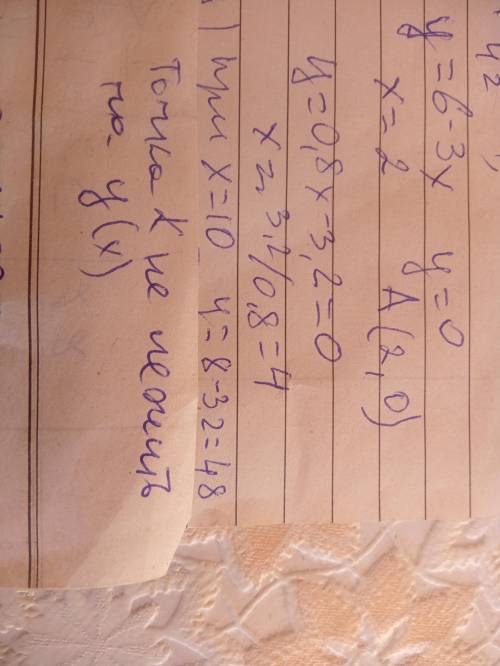 42
y = 6-3x y=0
x=2 A(2,0)
y=0,8x-3,2=0
x=3,2/0,8=4
) При x=10 y=8-3,2=4,8
Точка К не лежить
на y(x)